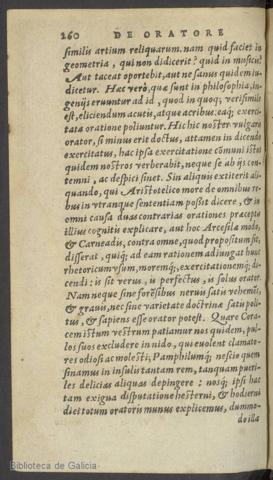 260 DE ORATORE
similis artium reliquarum. nam quid faciet in
geometria, qui non didicerit? quid in musicis?
Aut taceat oportebit, aut ne sanus quidem iu-
dicetur. Hæc verò, quæ sunt in philosophia, in-
genijs eruuntur ad id, quod in quoq; verisimile
est, eliciendum acutis, atque acribus. eaq; exerci-
tata oratione poliuntur. Hic hic noster vulgaris
orator, si minus erit doctus, attamen in dicendo
exercitatus, hac ipsa exercitatione cōmuni istos
quidem nostros verberabit, neque se ab ijs con-
temni, ac despici sinet. Sin aliquis extiterit ali-
quando, qui Aristotelico more de omnibus re-
bus in vtranque sententiam possit dicere, & in
omni causa duas contrarias orationes præceptis
illius cognitis explicare, aut hoc Arcesilæ modo,
& Carneadis, contra omne, quod propositum sit,
disserat, quiq; ad eam rationem adiungat hunc
rhetoricum vsum, moremq;, exercitationemq; di-
cendi: is sit verus, is perfectus, is solus orator.
Nam neque sine forensibus neruis satis vehemēs,
& grauis, nec sine varietate doctrinæ satis poli-
tus, & sapiens esse orator potest. Quare Cora-
cem istum vestrum patiamur nos quidem, pul-
los suos excludere in nido, qui euolent clamato-
res odiosi ac molesti; Pamphilumq; nescio quem
sinamus in insulis tantam rem, tanquam pueri-
les delicias aliquas depingere: nosq; ipsi hac
tam exigua disputatione hesterni, & hodierni
diei totum oratoris munus explicemus, dummo-
do illa
Biblioteca de Galicia